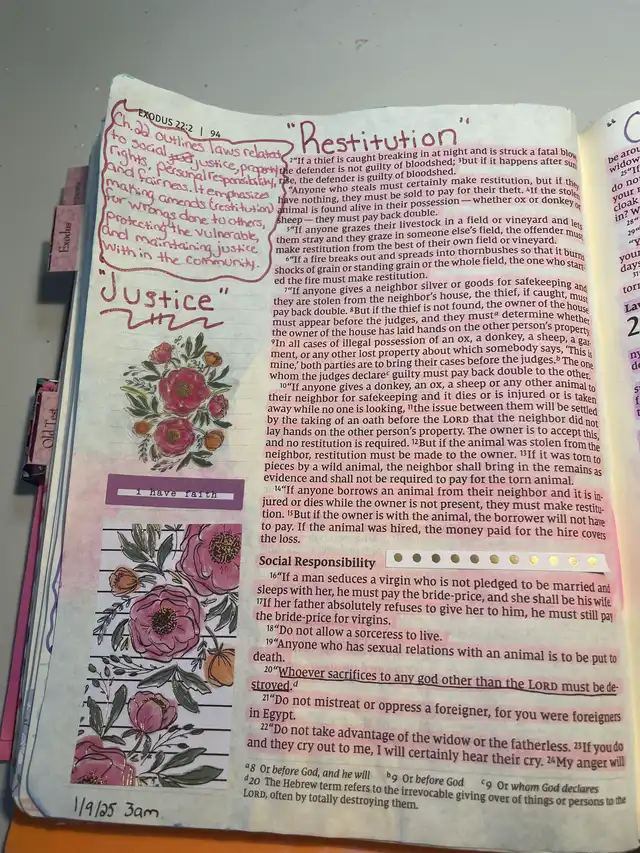 EXODUS 22:2 | 94
Ch. 22 outlines laws related
to social justice, property
rights, personal responsibility,
and fairness. It emphasizes
making amends (restitution)
for wrongs done to others,
protecting the vulnerable,
and maintaining justice
with in the community.
"Justice"
i have faith
1/9/25 3am
Exodus
Old Test
"Restitution"
2"If a thief is caught breaking in at night and is struck a fatal blow,
the defender is not guilty of bloodshed; 3but if it happens after sun-
rise, the defender is guilty of bloodshed.
"Anyone who steals must certainly make restitution, but if they
have nothing, they must be sold to pay for their theft. 4If the stolen
animal is found alive in their possession—whether ox or donkey or
sheep—they must pay back double.
5"If anyone grazes their livestock in a field or vineyard and lets
them stray and they graze in someone else's field, the offender must
make restitution from the best of their own field or vineyard.
6"If a fire breaks out and spreads into thornbushes so that it burns
shocks of grain or standing grain or the whole field, the one who start-
ed the fire must make restitution.
7"If anyone gives a neighbor silver or goods for safekeeping and
they are stolen from the neighbor's house, the thief, if caught, must
pay back double. 8But if the thief is not found, the owner of the house
must appear before the judges, and they mustᵃ determine whether
the owner of the house has laid hands on the other person's property.
9In all cases of illegal possession of an ox, a donkey, a sheep, a gar-
ment, or any other lost property about which somebody says, 'This is
mine,' both parties are to bring their cases before the judges.ᵇ The one
whom the judges declareᶜ guilty must pay back double to the other.
10"If anyone gives a donkey, an ox, a sheep or any other animal to
their neighbor for safekeeping and it dies or is injured or is taken
away while no one is looking, 11the issue between them will be settled
by the taking of an oath before the LORD that the neighbor did not
lay hands on the other person's property. The owner is to accept this,
and no restitution is required. 12But if the animal was stolen from the
neighbor, restitution must be made to the owner. 13If it was torn to
pieces by a wild animal, the neighbor shall bring in the remains as
evidence and shall not be required to pay for the torn animal.
14"If anyone borrows an animal from their neighbor and it is in-
jured or dies while the owner is not present, they must make restitu-
tion. 15But if the owner is with the animal, the borrower will not have
to pay. If the animal was hired, the money paid for the hire covers
the loss.
Social Responsibility
16"If a man seduces a virgin who is not pledged to be married and
sleeps with her, he must pay the bride-price, and she shall be his wife.
17If her father absolutely refuses to give her to him, he must still pay
the bride-price for virgins.
18"Do not allow a sorceress to live.
19"Anyone who has sexual relations with an animal is to be put to
death.
20"Whoever sacrifices to any god other than the LORD must be de-
stroyed.ᵈ
21"Do not mistreat or oppress a foreigner, for you were foreigners
in Egypt.
22"Do not take advantage of the widow or the fatherless. 23If you do
and they cry out to me, I will certainly hear their cry. 24My anger will
ᵃ8 Or before God, and he will ᵇ9 Or before God ᶜ9 Or whom God declares
ᵈ20 The Hebrew term refers to the irrevocable giving over of things or persons to the
LORD, often by totally destroying them.
be arou
widow
25"If
do no
your
cloak